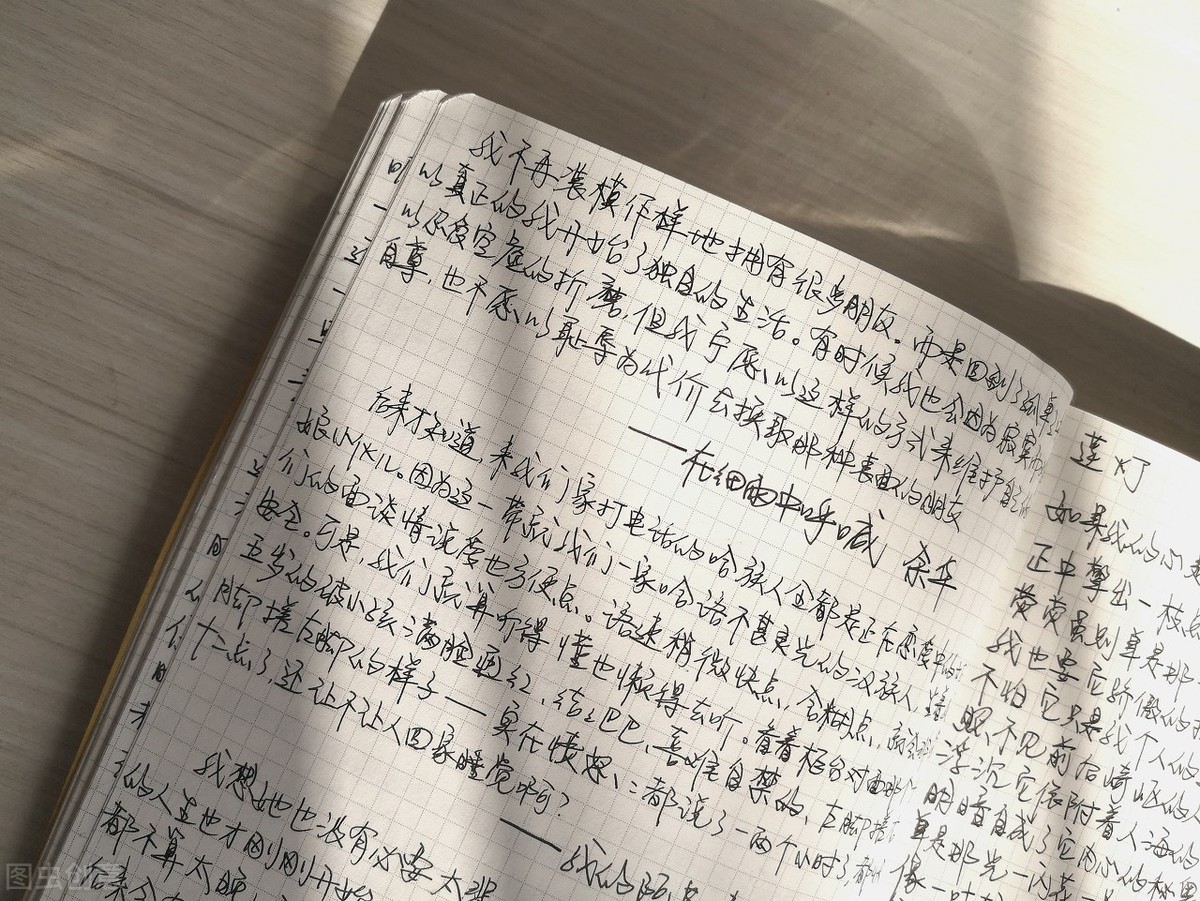 我不再装模作样地拥有很多朋友。而是回到了孤单之
以真正的我开始了独自的生活。有时候我也会因为寂寞而
以忍受空虚的折磨,但我宁愿以这样的方式来维护自己的
自尊,也不愿以耻辱为代价去换取那种表面的朋友
——在细雨中呼喊 余华
后来才知道,来我们家打电话的哈族人全都是正在恋爱中的
娘小伙儿。因为这一带就我们一家哈语不甚灵光的汉族人,
们的面谈情说爱也方便点。语速稍微快点,含糊点,
安全。可是,我们就算听得懂也懒得去听。看着柜台对面那个
五岁的破小孩满脸通红、结结巴巴、喜难自禁的、左脚搓
脚搓左脚的样子——实在愤怒,都说了一两个小时了,都
十二点了,还让不让人回家睡觉啊?
——我的阿
我想她也没有必要太悲
的人生也才刚刚开始
都不算太晚
莲灯
如果我的心
正中擎出一枝
荧荧
我也要它骄傲的
不怕它只是我个人的
照不见前后崎岖的
浮沉它依附着人海的
明暗自成了它内心的秘
单是那光一闪花一
像一叶
图虫创意